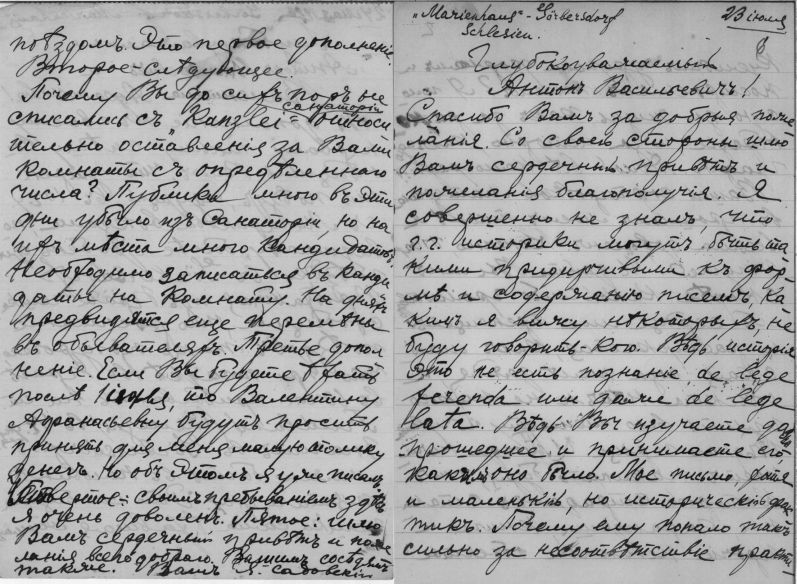 поѣздомъ. Это первое дополненіе.
Второе – слѣдующее.
Почему Вы до сихъ поръ не
списались съ „Kanzlei“ санаторіи относи
тельно оставленія за Вами
комнаты съ опредѣленнаго
числа? Публики много въ эти
дни убыло изъ Санаторіи, но на
ихъ мѣста много кандидатовъ.
Необходимо записаться въ канди
даты на комнату. На дняхъ
предвидятся еще перемѣны
въ обывателяхъ. Третье допол
неніе. Если Вы будете ѣхать
послѣ 1 іюля, то Валентину
Афанасьевну будутъ просить
принять для меня малую толику
денегъ. Но объ этомъ я уже писалъ
Четвертое – своимъ пребываніемъ здѣсь
я очень доволенъ. Пятое: шлю
Вамъ сердечный привѣтъ и поже
ланія всего добраго. Вашимъ сосѣдямъ
также. Вамъ Я. Садовскій
„Marienhaus“ – Görbersdorf
Schlesien. 23 іюня
Глубокоуважаемый
Антонъ Васильевичъ!
Спасибо Вамъ за добрыя поже
ланія. Со своей стороны шлю
Вамъ сердечный привѣтъ и
пожеланія благополучія. Я
совершенно не зналъ, что
г.г. историки могутъ быть та
кими придирчивыми къ фор
мѣ и содержанію писемъ, ка
кимъ я вижу нѣкоторыхъ, не
буду говорить – кого. Вѣдь исторія
это не есть познаніе de lege
ferenda или даже de lege
lata. Вѣдь Вы изучаете давно
прошедшее и принимаете его
какъ оно было. Мое письмо, хотя
и маленькій, но историческій фак
тикъ. Почему ему попало такъ
сильно за несоотвѣтствіе практи-